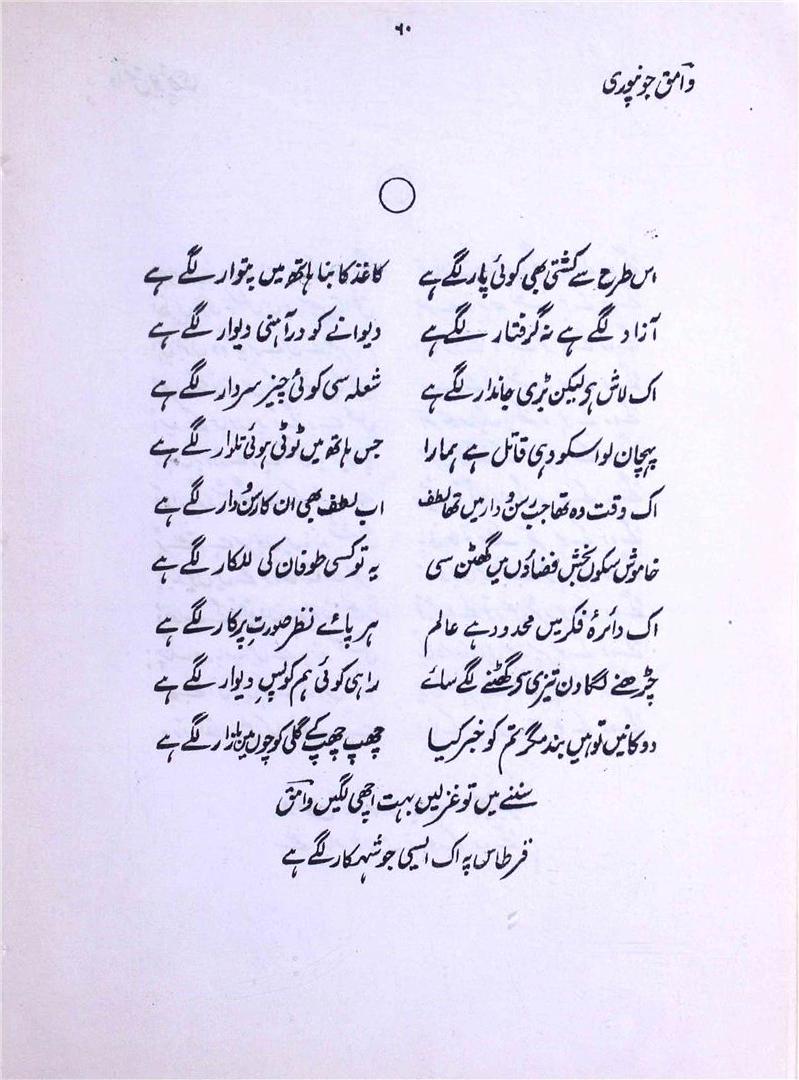 ۶۰
وامق جونپوری
اس طرح سے کشتی بھی کوئی پار لگے ہے کاغذ کا بنا ہاتھ میں پتوار لگے ہے
آزاد لگے ہے نہ گرفتار لگے ہے دیوانے کو در آہنی دیوار لگے ہے
اک لاش ہو لیکن بڑی جاندار لگے ہے شعلہ سی کوئی چیز سردار لگے ہے
پہچان لو اسکو وہی قاتل ہے ہمارا جس ہاتھ میں ٹوٹی ہوئی تلوار لگے ہے
اک وقت وہ تھا جب رسن و دار میں تھا لطف اب لطف بھی ان کا رسن و دار لگے ہے
خاموش سکوں بخش فضاؤں میں گھٹن سی یہ تو کسی طوفان کی للکار لگے ہے
اک دائرۂ فکر میں محدود ہے عالم ہر پائے نظر صورتِ پرکار لگے ہے
چڑھنے لگا دن تیزی سے گھٹنے لگے سائے راہی کوئی ہم کو پسِ دیوار لگے ہے
دوکانیں تو ہیں بند مگر تم کو خبر کیا چھپ چھپ کے گلی کوچوں میں بازار لگے ہے
سننے میں تو غزلیں بہت اچھی لگیں وامق
قرطاس پہ اک ایسی جو شہکار لگے ہے